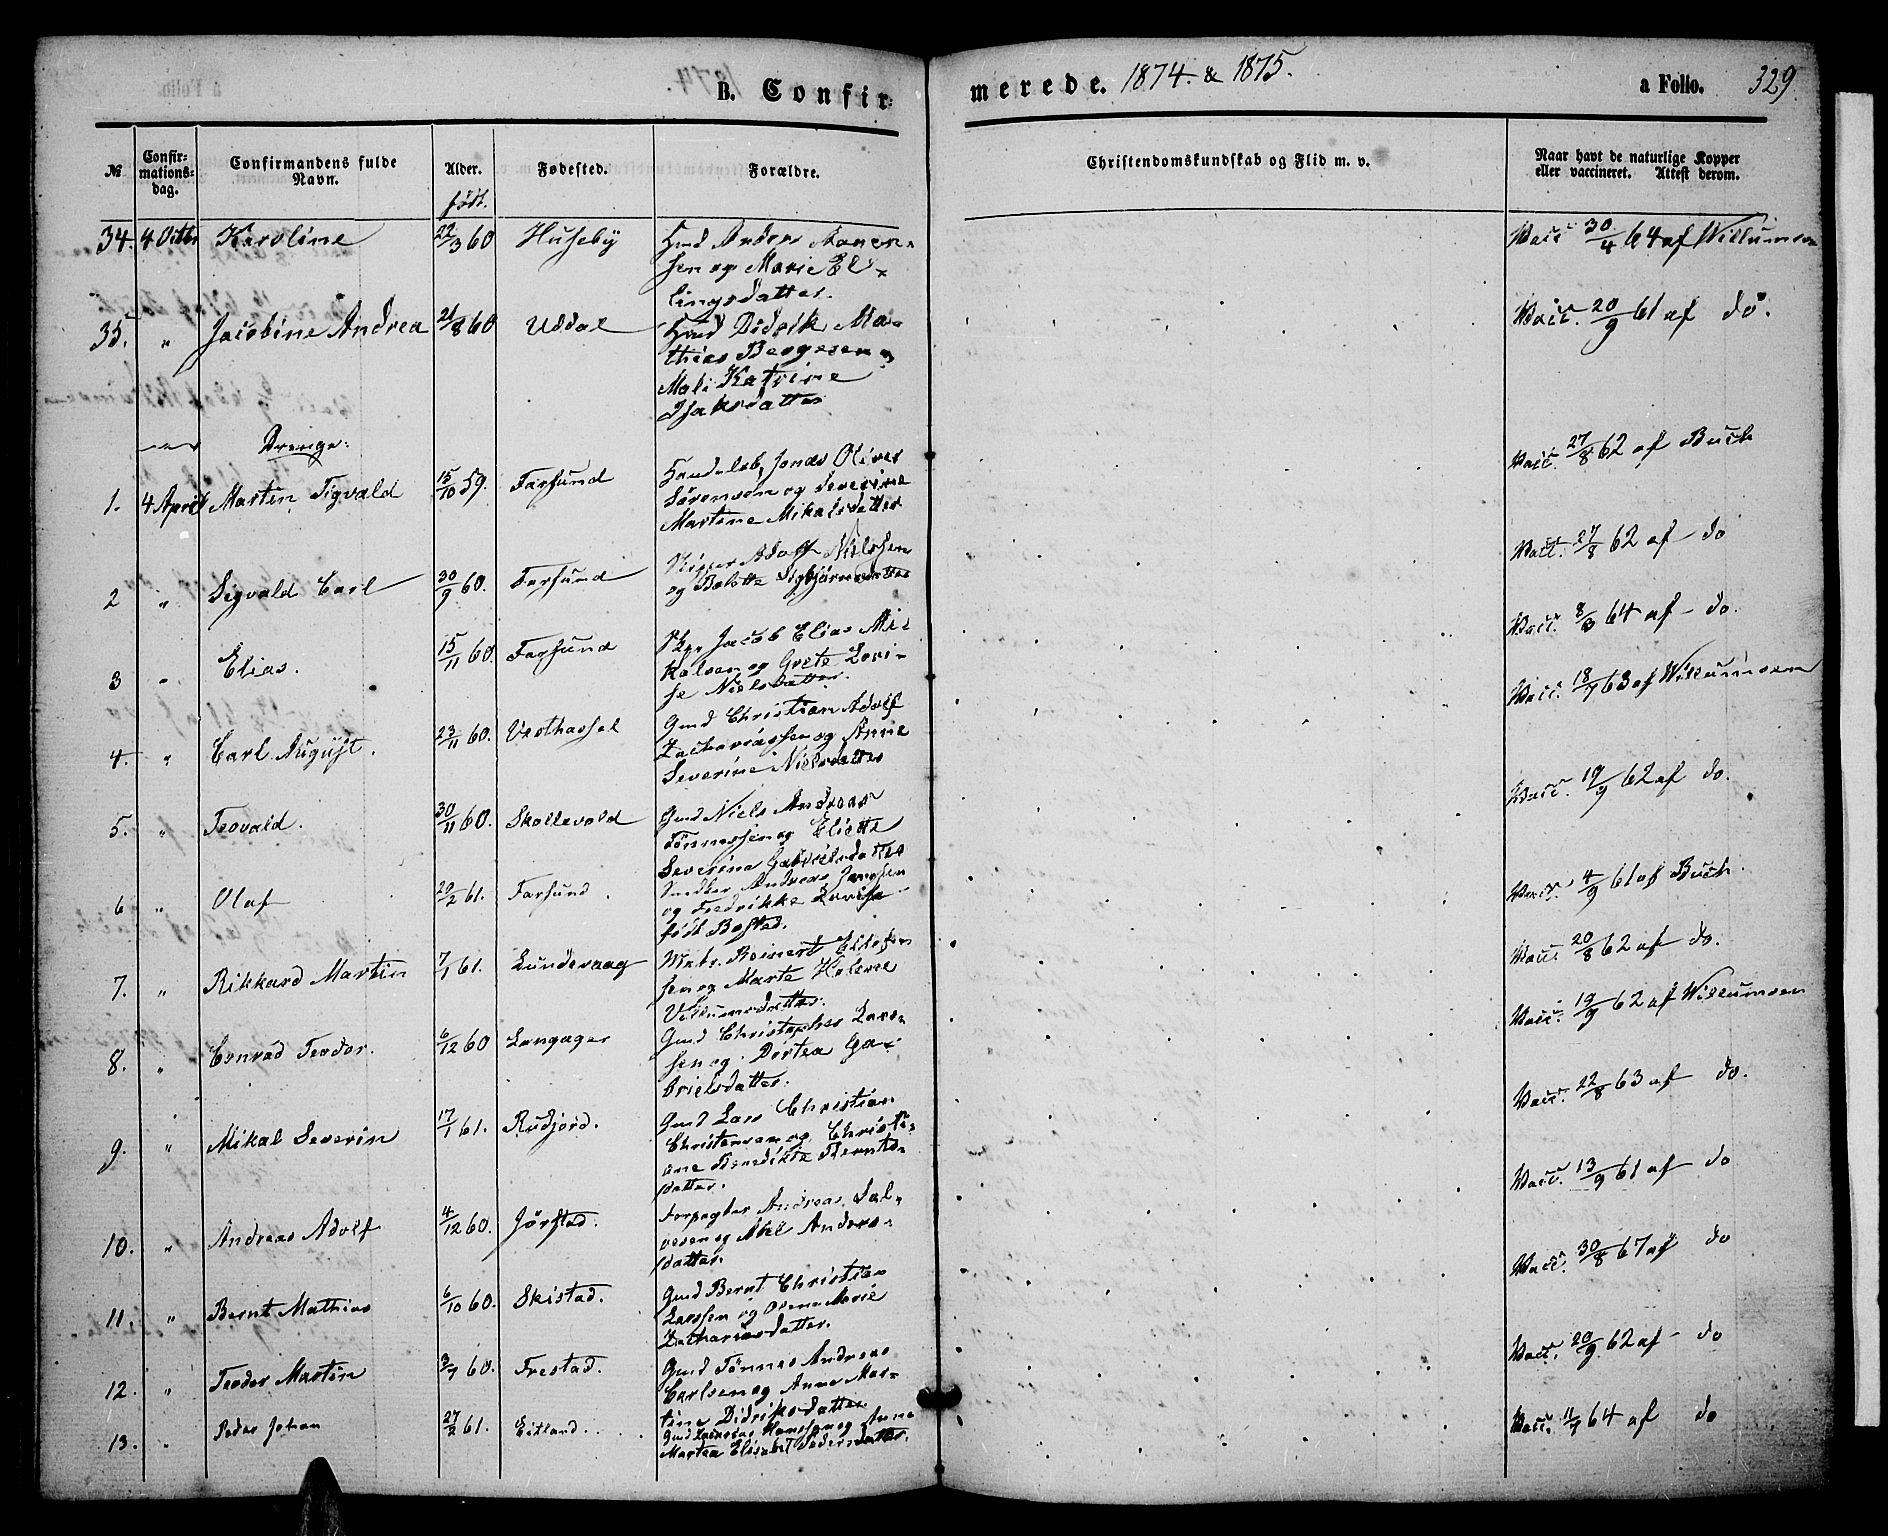 B. Confirmerede. 1874. & 1875. a Folio. 329.
№ Confirmationsdag. Confirmandens fulde Navn. Alder. født. Fødested. Forældre. Christendomskundskab og Flid m. v. Naar havt de naturlige Kopper eller vaccineret. Attest derom.
34. 4 Octbr Karoline 22/3 60 Huseby Gmd Andreas Aanen-
sen og Marie El-
lingsdatter. Vacc 30/4 64 af Willumsen
35. " Jacobine Andrea 21/8 60 Uddal Gmd Didrik Ma-
thias Bergesen og
Mali Katrine
Isaksdatter Vacc. 20/9 61 af do.
Drenge:
1. 4 April Martin Sigvald 15/10 59. Farsund Handelsb. Jonas Oliver
Sørensen og Severine
Martine Mikalsdatter Vacc. 27/8 62 af Buch
2 " Sigvald Carl 30/9 60. Farsund Adolf Nielssen
og Bolette Sigbjørnsdatter Vacc. 27/8 62 af do
3 " Elias. 15/11 60. Farsund Skpr Jacob Elias Mi-
kalsen og Grete Lovi-
se Nielsdatter. Vacc. 8/3 64 af do.
4. " Carl August. 23/11 60. Vesthassel Gmd Christian Adolf
Zachariassen og Anne
Severine Nielsdatter Vacc. 18/7 63 af Willumsen
5. " Teovald. 30/11 60. Skollevold Gmd Niels Andreas
Tønnessen og Elisette
Severine Gabrielsdatter Vacc. 19/9 62 af do.
6 " Olaf 20/2 61. Farsund. Snedker Andreas Janssen
og Fredrikke Lovise
født Bostad. Vacc. 4/9 61 af Buch.
7. " Rikkard Martin 7/1 61. Lundevaag Matr. Reinert Ellefsen
sen og Marte Helene
Villumsdatter. Vacc 20/8 62 af do.
8. " Conrad Teodor. 6/12 60 Langager Gmd Christopher Lars-
sen og Dortea Ga-
brielsdatter. Vacc. 19/9 62 af Willumsen
9. " Mikal Severin 17/1 61. Rudjord. Gmd Lars Christian
Christensen og Christi-
ane Benedikte Berntd-
datter. Vacc. 22/8 63 af do.
10. " Andreas Adolf 4/12 60. Jørstad. Forpagter Andreas Sal-
vesen og Abel Anders-
datter. Vacc. 13/9 61 af do
11. " Bernt Mathias 6/10 60. Skistad. Gmd Bernt Christian
Larssen og Marie
Zachariasdatter. Vacc. 30/8 67 af do
12. " Teodor Martin 3/7 60. Frestad. Gmd Tønnes Andreas
Carlsen og Anne Mar-
tine Didriksdatter Vacc. 20/9 62 af do
13. " Peder Johan 27/2 61. Eitland. Gmd Hanssen og Anne
Martea Elisabet Pedersdatter. Vacc. 11/7 64 af do